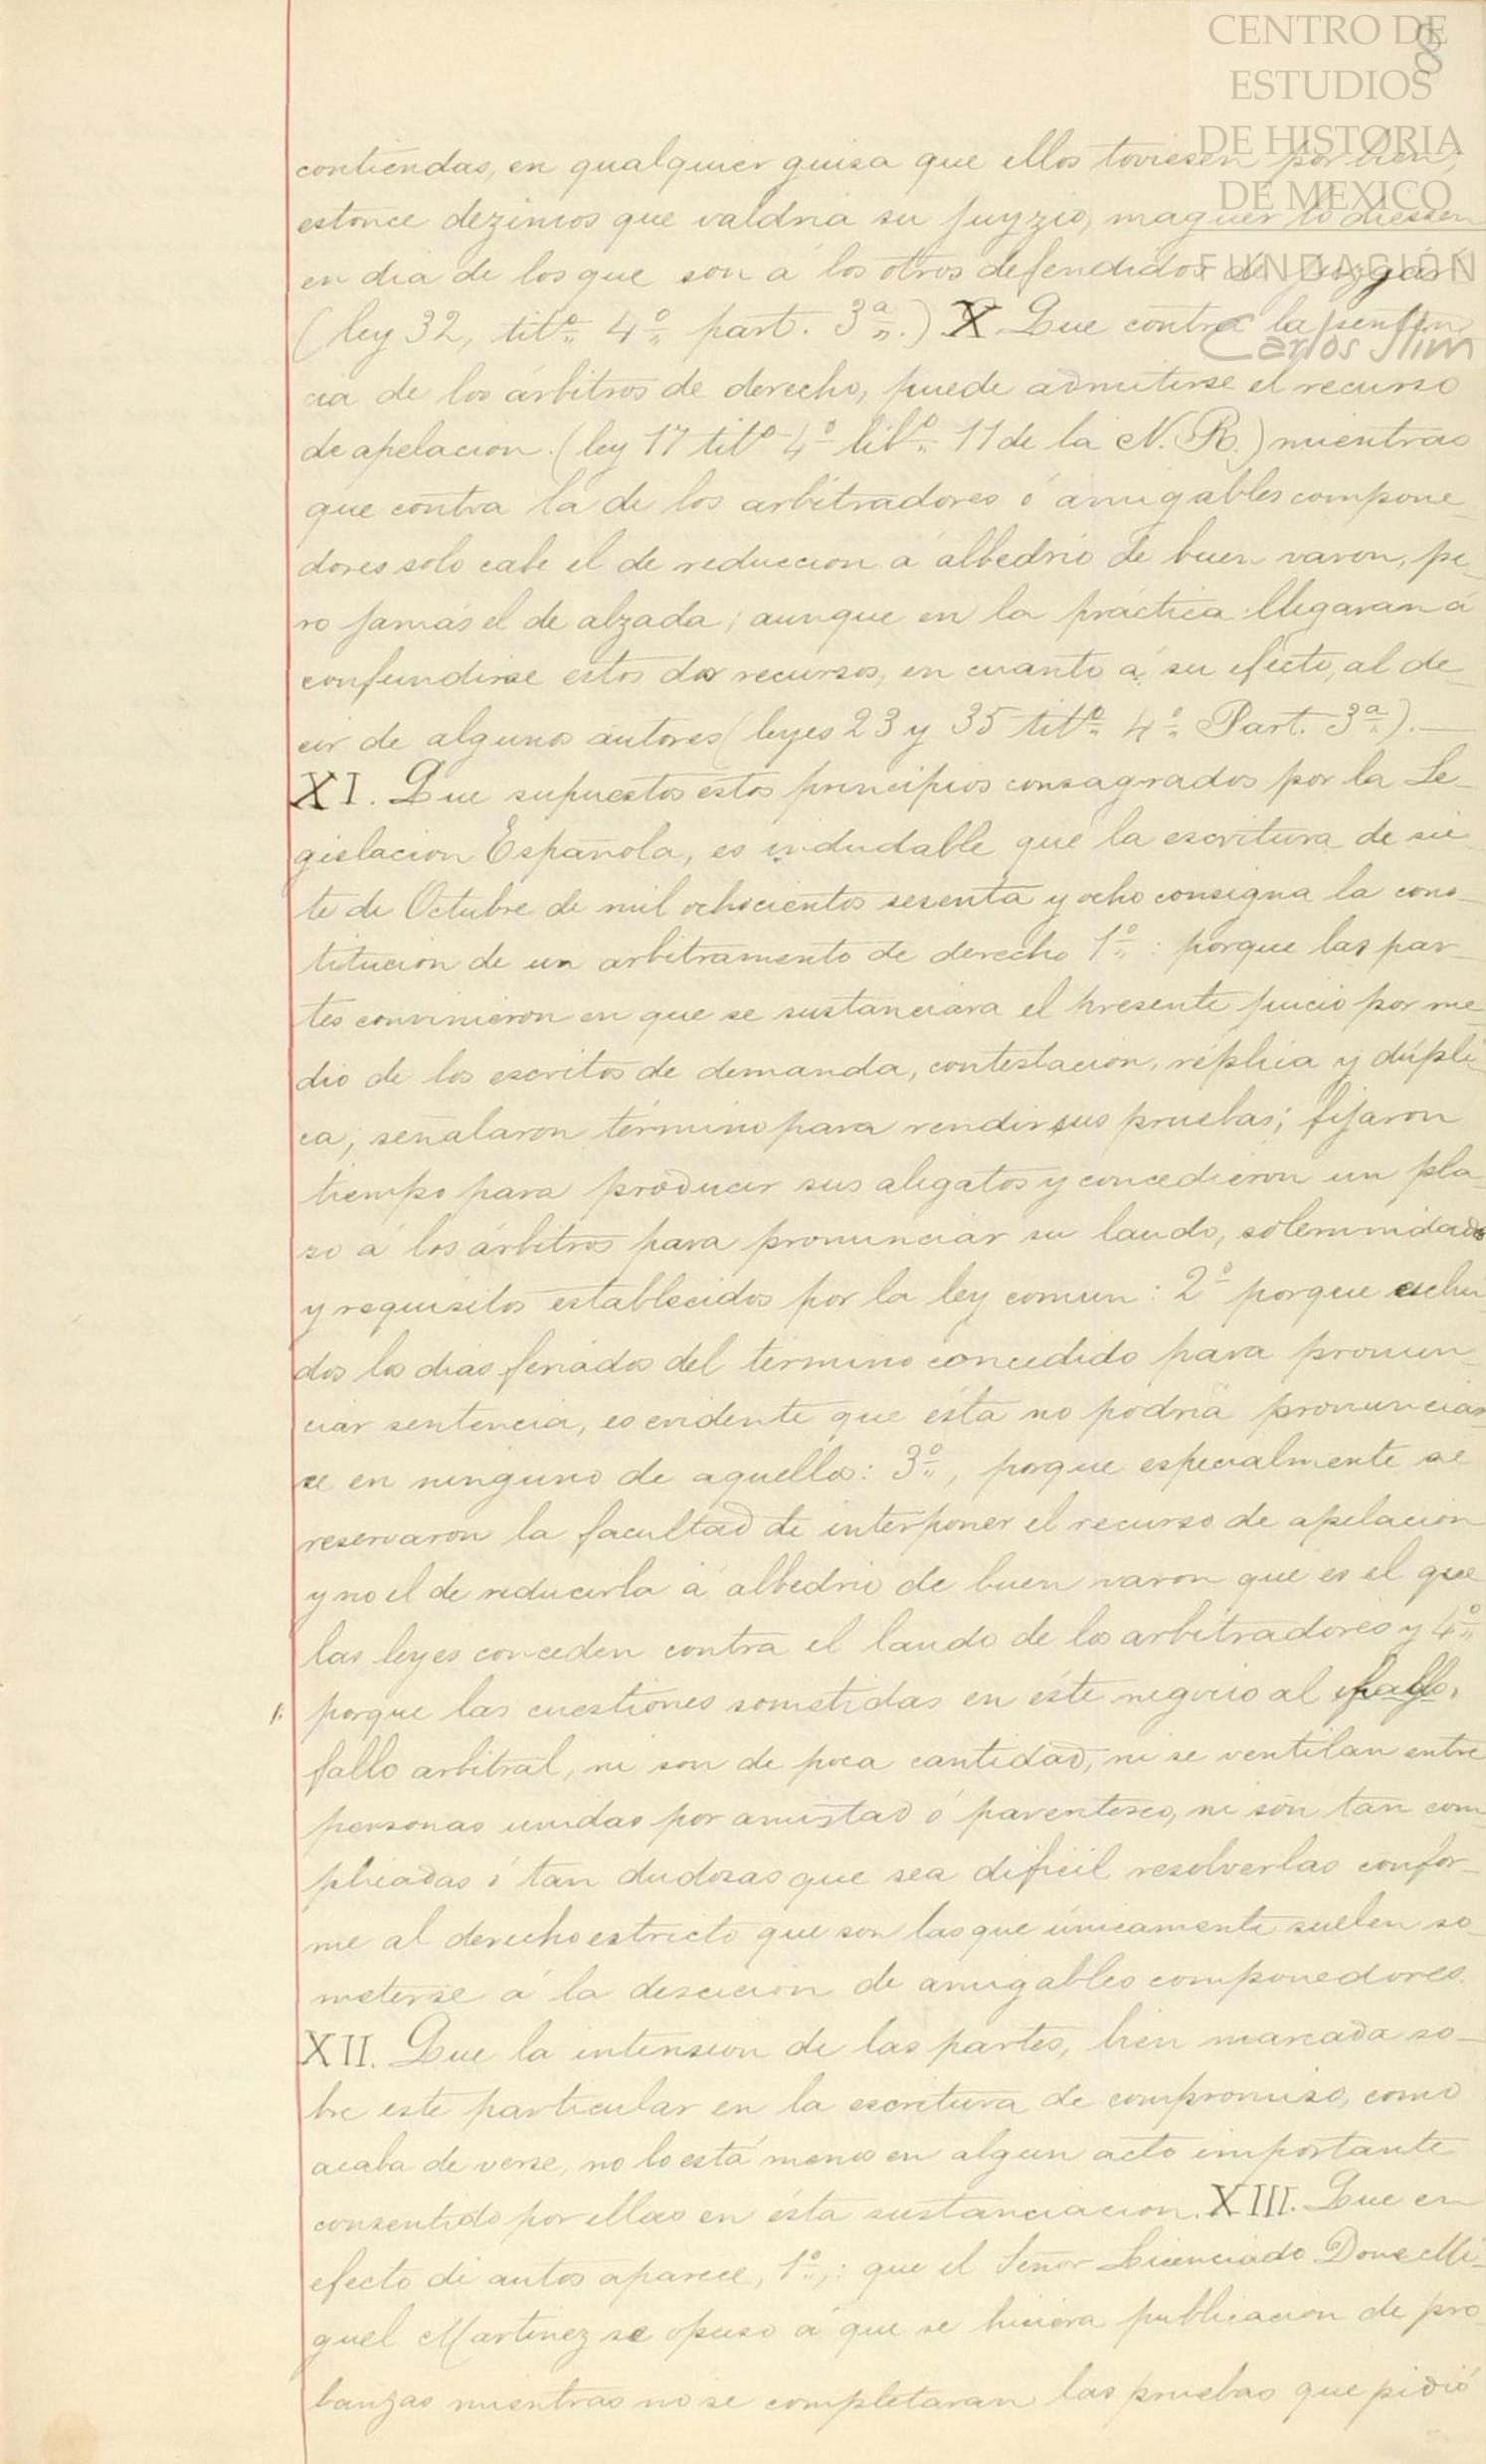 CENTRO DE
ESTUDIOS
DE HISTORIA
DE MEXICO
FUNDACIÓN
Carlos Slim
8
contiendas, en qualquier guisa que ellos toviesen por bien;
estonce dezimos que valdria su juyzio, maguer lo diessen
en dia de los que son á los otros defendidos de juzgar
(ley 32, titº 4º part. 3ª) X Que contra la senten
cia de los árbitros de derecho, puede admitirse el recurso
de apelacion. (ley 17 titº 4º libº 11 de la N. R.) mientras
que contra la de los arbitradores ó amigables compone
dores solo cabe el de reduccion á albedrio de buen varon, pe
ro jamás el de alzada; aunque en la práctica llegaran á
confundirse estos dos recursos, en cuanto á su efecto, al de
cir de algunos autores (leyes 23 y 35 titº 4º Part. 3ª).—
XI. Que supuestos estos principios consagrados por la Le-
gislacion Española, es indudable que la escritura de sie
te de Octubre de mil ochocientos sesenta y ocho consigna la cons-
titucion de un arbitramento de derecho 1º: porque las par-
tes convinieron en que se sustanciara el presente juicio por me
dio de los escritos de demanda, contestacion, réplica y dúpli-
ca; señalaron término para rendir sus pruebas; fijaron
tiempo para producir sus alegatos y concedieron un pla
zo á los árbitros para pronunciar su laudo, solemnidades
y requisitos establecidos por la ley comun: 2º porque esclui
dos los dias feriados del término concedido para pronun
ciar sentencia, es evidente que ésta no podria pronunciar
se en ninguno de aquellos: 3º, porque especialmente se
reservaron la facultad de interponer el recurso de apelacion
y no el de reducirla á albedrio de buen varon que es el que
las leyes conceden contra el laudo de los arbitradores y 4º
porque las cuestiones sometidas en éste negocio al
fallo arbitral, ni son de poca cantidad, ni se ventilan entre
personas unidas por amistad ó parentesco, ni son tan com
plicadas ó tan dudosas que sea dificil resolverlas confor-
me al derecho estricto que son las que únicamente suelen so
meterse á la descicion de amigables componedores.
XII. Que la intension de las partes, bien marcada so-
bre este particular en la escritura de compromiso, como
acaba de verse, no lo está menos en algun acto importante
consentido por ellas en ésta sustanciacion. XIII. Que en
efecto de autos aparece, 1º,: que el Señor Licenciado Don Mi-
guel Martinez se opuso á que se hiciera publicacion de pro
banzas mientras no se completaran las pruebas que pidió